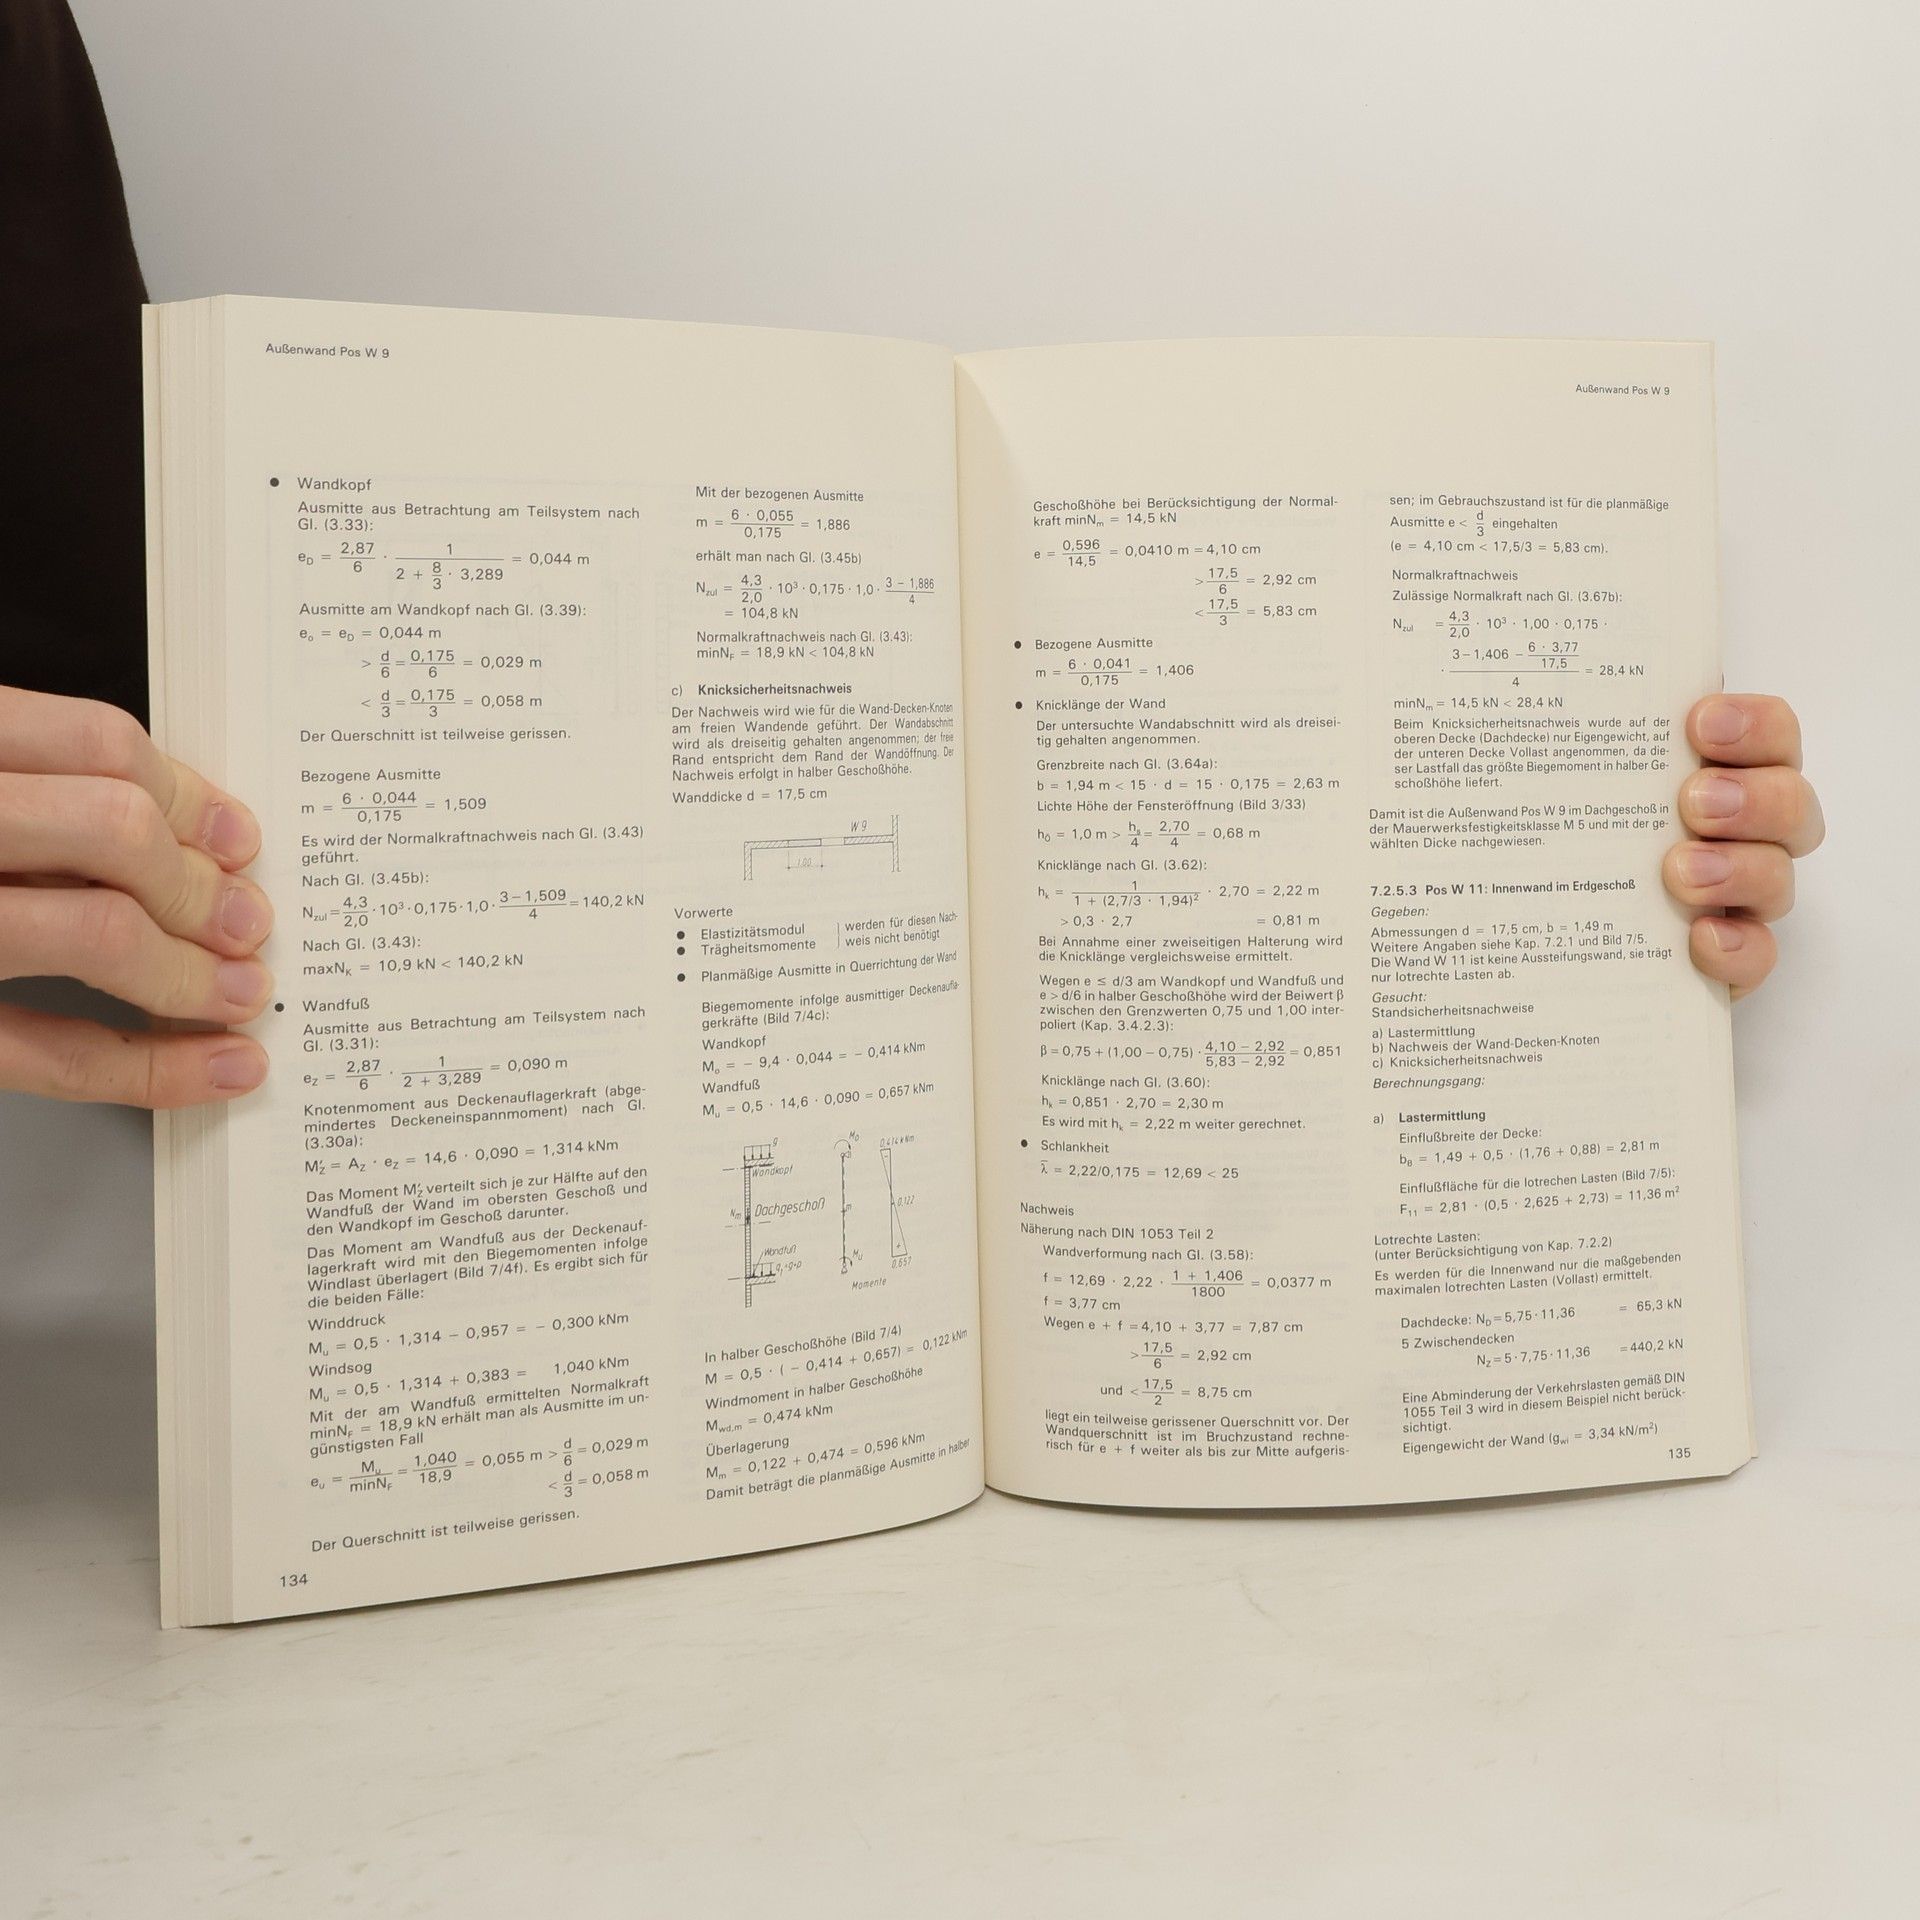 Außenwand Pos W 9
● Wandkopf
Ausmitte aus Betrachtung am Teilsystem nach
Gl. (3.33):
e_D = 2,87/6 · 1/(2 + 8/3 · 3,289) = 0,044 m
Ausmitte am Wandkopf nach Gl. (3.39):
e_o = e_D = 0,044 m
> d/6 = 0,175/6 = 0,029 m
< d/3 = 0,175/3 = 0,058 m
Der Querschnitt ist teilweise gerissen.
Bezogene Ausmitte
m = 6 · 0,044/0,175 = 1,509
Es wird der Normalkraftnachweis nach Gl. (3.43)
geführt.
Nach Gl. (3.45b):
N_zul = 4,3/2,0 · 10³ · 0,175 · 1,0 · (3 − 1,509)/4 = 140,2 kN
Nach Gl. (3.43):
maxN_K = 10,9 kN < 140,2 kN
● Wandfuß
Ausmitte aus Betrachtung am Teilsystem nach
Gl. (3.31):
e_Z = 2,87/6 · 1/(2 + 3,289) = 0,090 m
Knotenmoment aus Deckenauflagerkraft (abge-
mindertes Deckeneinspannmoment) nach Gl.
(3.30a):
M'_Z = A_Z · e_Z = 14,6 · 0,090 = 1,314 kNm
Das Moment M'_Z verteilt sich je zur Hälfte auf den
Wandfuß der Wand im obersten Geschoß und
den Wandkopf im Geschoß darunter.
Das Moment am Wandfuß aus der Deckenauf-
lagerkraft wird mit den Biegemomenten infolge
Windlast überlagert (Bild 7/4f). Es ergibt sich für
die beiden Fälle:
Winddruck
M_u = 0,5 · 1,314 − 0,957 = − 0,300 kNm
Windsog
M_u = 0,5 · 1,314 + 0,383 = 1,040 kNm
Mit der am Wandfuß ermittelten Normalkraft
minN_F = 18,9 kN erhält man als Ausmitte im un-
günstigsten Fall
e_u = M_u/minN_F = 1,040/18,9 = 0,055 m > d/6 = 0,029 m
< d/3 = 0,058 m
Der Querschnitt ist teilweise gerissen.
134
Mit der bezogenen Ausmitte
m = 6 · 0,055/0,175 = 1,886
erhält man nach Gl. (3.45b)
N_zul = 4,3/2,0 · 10³ · 0,175 · 1,0 · (3 − 1,886)/4
= 104,8 kN
Normalkraftnachweis nach Gl. (3.43):
minN_F = 18,9 kN < 104,8 kN
c) Knicksicherheitsnachweis
Der Nachweis wird wie für die Wand-Decken-Knoten
am freien Wandende geführt. Der Wandabschnitt
wird als dreiseitig gehalten angenommen; der freie
Rand entspricht dem Rand der Wandöffnung. Der
Nachweis erfolgt in halber Geschoßhöhe.
Wanddicke d = 17,5 cm
W 9
1.00
Vorwerte
● Elastizitätsmodul
● Trägheitsmomente
werden für diesen Nach-
weis nicht benötigt
● Planmäßige Ausmitte in Querrichtung der Wand
Biegemomente infolge ausmittiger Deckenaufla-
gerkräfte (Bild 7/4c):
Wandkopf
M_o = − 9,4 · 0,044 = − 0,414 kNm
Wandfuß
M_u = 0,5 · 14,6 · 0,090 = 0,657 kNm
g
Wandkopf
N_m
Dachgeschoß
Wandfuß
q_1=g+p
M_o
m
M_u
0,414 kNm
−
0,122
+
0,657
Momente
In halber Geschoßhöhe (Bild 7/4)
M = 0,5 · ( − 0,414 + 0,657) = 0,122 kNm
Windmoment in halber Geschoßhöhe
M_wd,m = 0,474 kNm
Überlagerung
M_m = 0,122 + 0,474 = 0,596 kNm
Damit beträgt die planmäßige Ausmitte in halber
Außenwand Pos W 9
Geschoßhöhe bei Berücksichtigung der Normal-
kraft minN_m = 14,5 kN
e = 0,596/14,5 = 0,0410 m = 4,10 cm
> 17,5/6 = 2,92 cm
< 17,5/3 = 5,83 cm
● Bezogene Ausmitte
m = 6 · 0,041/0,175 = 1,406
● Knicklänge der Wand
Der untersuchte Wandabschnitt wird als dreisei-
tig gehalten angenommen.
Grenzbreite nach Gl. (3.64a):
b = 1,94 m < 15 · d = 15 · 0,175 = 2,63 m
Lichte Höhe der Fensteröffnung (Bild 3/33)
h_Ö = 1,0 m > h_s/4 = 2,70/4 = 0,68 m
Knicklänge nach Gl. (3.62):
h_k = 1/(1 + (2,7/3 · 1,94)²) · 2,70 = 2,22 m
> 0,3 · 2,7 = 0,81 m
Bei Annahme einer zweiseitigen Halterung wird
die Knicklänge vergleichsweise ermittelt.
Wegen e ≤ d/3 am Wandkopf und Wandfuß und
e > d/6 in halber Geschoßhöhe wird der Beiwert β
zwischen den Grenzwerten 0,75 und 1,00 inter-
poliert (Kap. 3.4.2.3):
β = 0,75 + (1,00 − 0,75) · (4,10 − 2,92)/(5,83 − 2,92) = 0,851
Knicklänge nach Gl. (3.60):
h_k = 0,851 · 2,70 = 2,30 m
Es wird mit h_k = 2,22 m weiter gerechnet.
● Schlankheit
λ̄ = 2,22/0,175 = 12,69 < 25
Nachweis
Näherung nach DIN 1053 Teil 2
Wandverformung nach Gl. (3.58):
f = 12,69 · 2,22 · (1 + 1,406)/1800 = 0,0377 m
f = 3,77 cm
Wegen e + f = 4,10 + 3,77 = 7,87 cm
> 17,5/6 = 2,92 cm
und < 17,5/2 = 8,75 cm
liegt ein teilweise gerissener Querschnitt vor. Der
Wandquerschnitt ist im Bruchzustand rechne-
risch für e + f weiter als bis zur Mitte aufgeris-
sen; im Gebrauchszustand ist für die planmäßige
Ausmitte e < d/3 eingehalten
(e = 4,10 cm < 17,5/3 = 5,83 cm).
Normalkraftnachweis
Zulässige Normalkraft nach Gl. (3.67b):
N_zul = 4,3/2,0 · 10³ · 1,00 · 0,175 ·
· (3 − 1,406 − 6 · 3,77/17,5)/4 = 28,4 kN
minN_m = 14,5 kN < 28,4 kN
Beim Knicksicherheitsnachweis wurde auf der
oberen Decke (Dachdecke) nur Eigengewicht, auf
der unteren Decke Vollast angenommen, da die-
ser Lastfall das größte Biegemoment in halber Ge-
schoßhöhe liefert.
Damit ist die Außenwand Pos W 9 im Dachgeschoß in
der Mauerwerksfestigkeitsklasse M 5 und mit der ge-
wählten Dicke nachgewiesen.
7.2.5.3 Pos W 11: Innenwand im Erdgeschoß
Gegeben:
Abmessungen d = 17,5 cm, b = 1,49 m
Weitere Angaben siehe Kap. 7.2.1 und Bild 7/5.
Die Wand W 11 ist keine Aussteifungswand, sie trägt
nur lotrechte Lasten ab.
Gesucht:
Standsicherheitsnachweise
a) Lastermittlung
b) Nachweis der Wand-Decken-Knoten
c) Knicksicherheitsnachweis
Berechnungsgang:
a) Lastermittlung
Einflußbreite der Decke:
b_B = 1,49 + 0,5 · (1,76 + 0,88) = 2,81 m
Einflußfläche für die lotrechten Lasten (Bild 7/5):
F_11 = 2,81 · (0,5 · 2,625 + 2,73) = 11,36 m²
Lotrechte Lasten:
(unter Berücksichtigung von Kap. 7.2.2)
Es werden für die Innenwand nur die maßgebenden
maximalen lotrechten Lasten (Vollast) ermittelt.
Dachdecke: N_D = 5,75 · 11,36 = 65,3 kN
5 Zwischendecken
N_Z = 5 · 7,75 · 11,36 = 440,2 kN
Eine Abminderung der Verkehrslasten gemäß DIN
1055 Teil 3 wird in diesem Beispiel nicht berück-
sichtigt.
Eigengewicht der Wand (g_wi = 3,34 kN/m²)
135